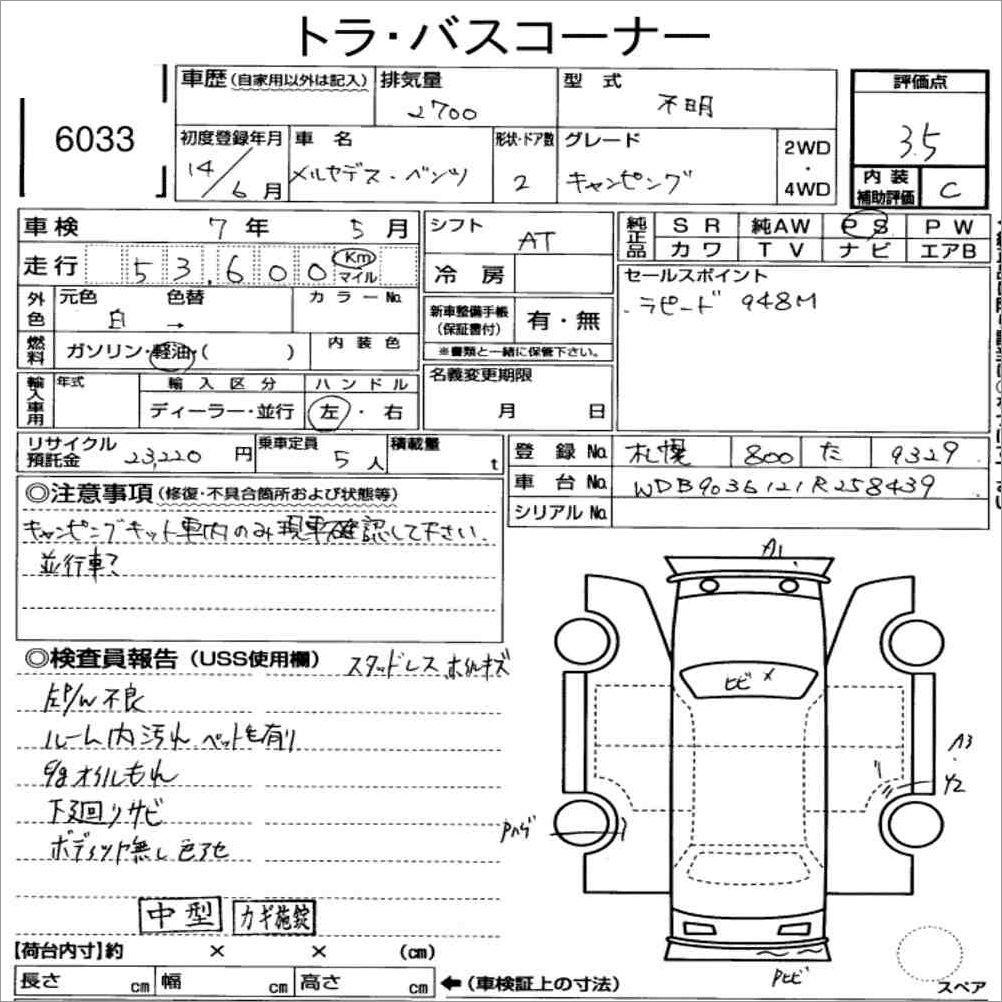 トラ・バスコーナー
6033
車歴 (自家用以外は記入)
排気量
2700
型式
不明
評価点
3.5
初度登録年月
14/6月
車名
メルセデス・ベンツ
形状・ドア数
2
グレード
キャンピング
2WD
・
4WD
内装
補助評価
C
車検 7年 5月
走行 53,600 Km
マイル
外色
元色 色替
白 →
カラーNo.
燃料
ガソリン・軽油・( )
内装色
輸入車用
年式
輸入区分
ディーラー・並行
ハンドル
左・右
シフト
AT
冷房
新車整備手帳
(保証書付)
有・無
※書類と一緒に保管下さい。
名義変更期限
月 日
純正品
SR 純AW PS PW
カワ TV ナビ エアB
セールスポイント
.ラピード 948M
リサイクル
預託金 23,220 円
乗車定員
5人
積載量
t
登録No. 札幌 800 た 9329
車台No. WDB9036121R258439
シリアルNo.
◎注意事項(修復・不具合箇所および状態等)
キャンピングキット車内のみ現車確認して下さい.
並行車?
◎検査員報告(USS使用欄) スタッドレス ホイルキズ
左P/W不良
ルーム内汚れ ペット毛有り
E/gオイルもれ
下廻りサビ
ボディツヤ無し色アセ
中型 カギ施錠
【荷台内寸】約 × × (cm)
長さ cm 幅 cm 高さ cm
←(車検証上の寸法)
A1
ヒビ ×
A3
Y2
Pハゲ
Pヒビ
スペア